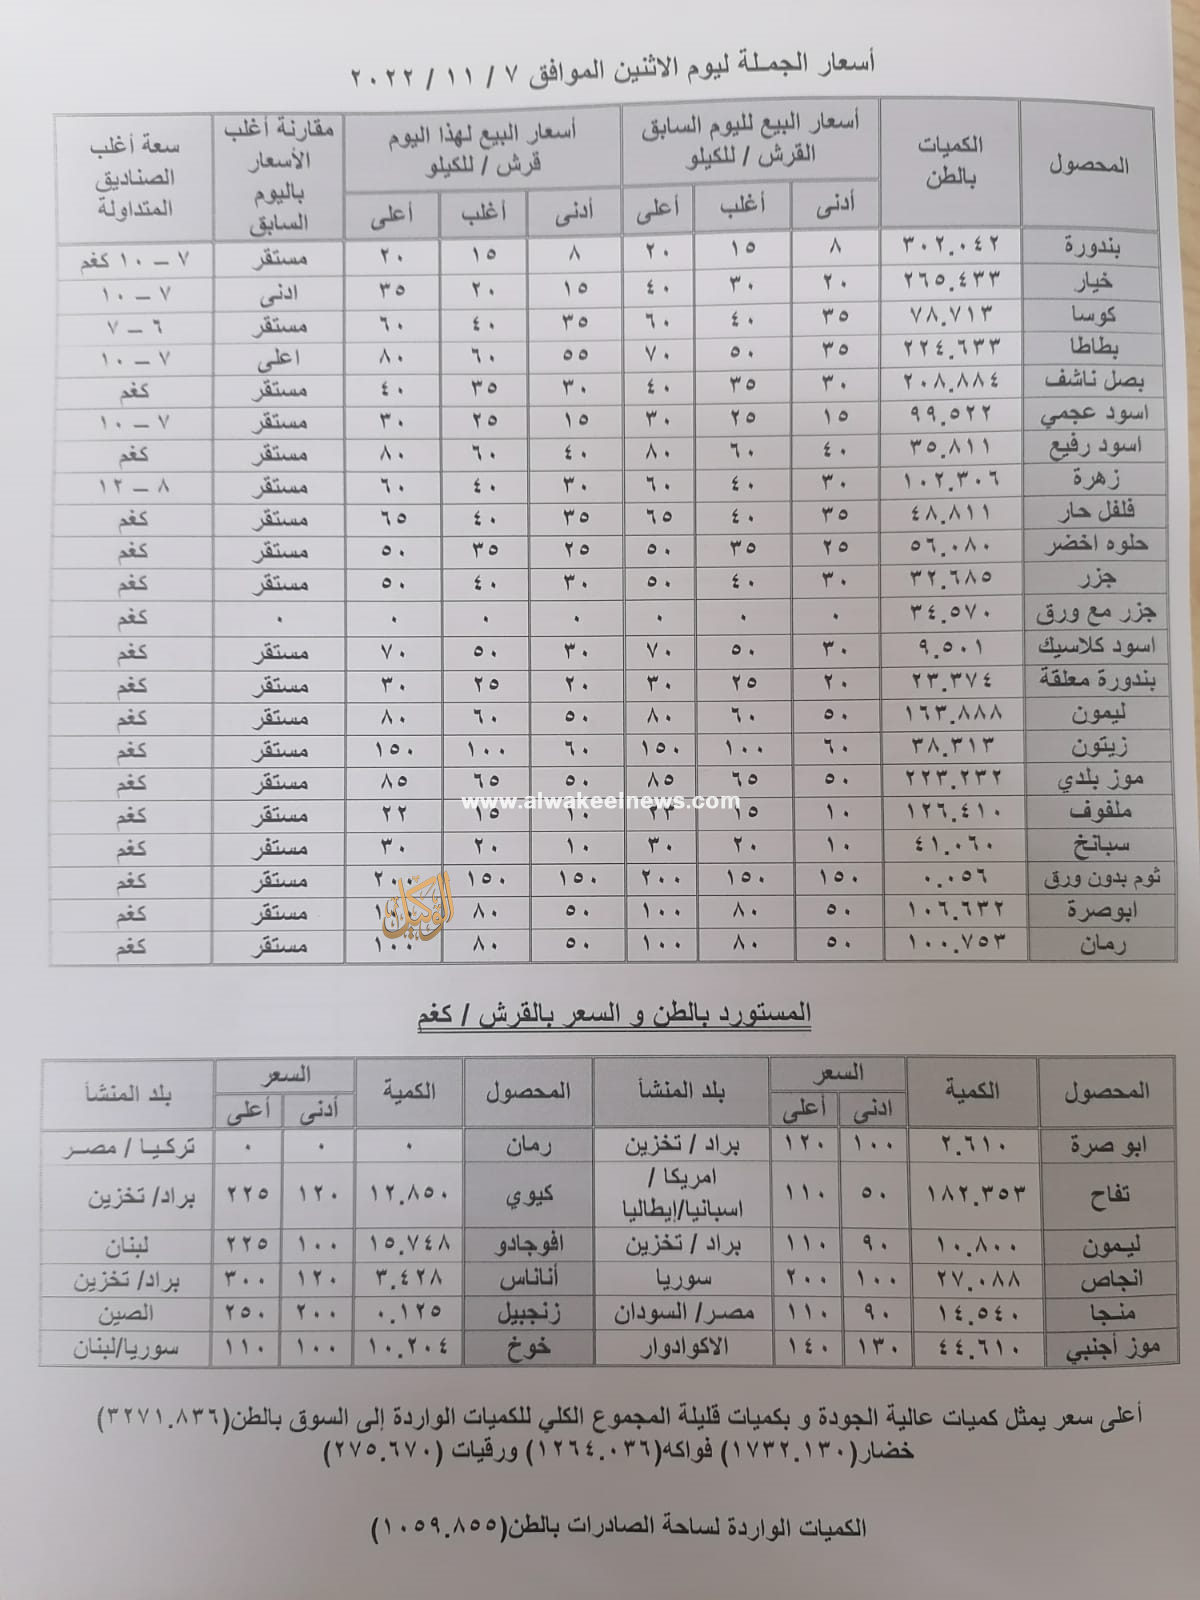 أسعار الجملة ليوم الاثنين الموافق ٧ / ١١ / ٢٠٢٢
المحصول الكميات بالطن أسعار البيع لليوم السابق القرش / للكيلو أسعار البيع لهذا اليوم قرش / للكيلو مقارنة أغلب الأسعار باليوم السابق سعة أغلب الصناديق المتداولة
أدنى أغلب أعلى أدنى أغلب أعلى
بندورة ٣٠٢.٠٤٢ ٨ ١٥ ٢٠ ٨ ١٥ ٢٠ مستقر ٧ – ١٠ كغم
خيار ٢٦٥.٤٣٣ ٢٠ ٣٠ ٤٠ ١٥ ٢٠ ٣٥ ادنى ٧ – ١٠
كوسا ٧٨.٧١٣ ٣٥ ٤٠ ٦٠ ٣٥ ٤٠ ٦٠ مستقر ٦ – ٧
بطاطا ٢٢٤.٦٣٣ ٣٥ ٥٠ ٧٠ ٥٥ ٦٠ ٨٠ اعلى ٧ – ١٠
بصل ناشف ٢٠٨.٨٨٤ ٣٠ ٣٥ ٤٠ ٣٠ ٣٥ ٤٠ مستقر كغم
اسود عجمي ٩٩.٥٢٢ ١٥ ٢٥ ٣٠ ١٥ ٢٥ ٣٠ مستقر ٧ – ١٠
اسود رفيع ٣٥.٨١١ ٤٠ ٦٠ ٨٠ ٤٠ ٦٠ ٨٠ مستقر كغم
زهرة ١٠٢.٣٠٦ ٣٠ ٤٠ ٦٠ ٣٠ ٤٠ ٦٠ مستقر ٨ – ١٢
فلفل حار ٤٨.٨١١ ٣٥ ٤٠ ٦٥ ٣٥ ٤٠ ٦٥ مستقر كغم
حلوه اخضر ٥٦.٠٨٠ ٢٥ ٣٥ ٥٠ ٢٥ ٣٥ ٥٠ مستقر كغم
جزر ٣٢.٦٨٥ ٣٠ ٤٠ ٥٠ ٣٠ ٤٠ ٥٠ مستقر كغم
جزر مع ورق ٣٤.٥٧٠ ٠ ٠ ٠ ٠ ٠ ٠ ٠ كغم
اسود كلاسيك ٩.٥٠١ ٣٠ ٥٠ ٧٠ ٣٠ ٥٠ ٧٠ مستقر كغم
بندورة معلقة ٢٣.٣٧٤ ٢٠ ٢٥ ٣٠ ٢٠ ٢٥ ٣٠ مستقر كغم
ليمون ١٦٣.٨٨٨ ٥٠ ٦٠ ٨٠ ٥٠ ٦٠ ٨٠ مستقر كغم
زيتون ٣٨.٣١٣ ٦٠ ١٠٠ ١٥٠ ٦٠ ١٠٠ ١٥٠ مستقر كغم
موز بلدي ٢٢٣.٢٣٢ ٥٠ ٦٥ ٨٥ ٥٠ ٦٥ ٨٥ مستقر كغم
www.alwakeelnews.com
ملفوف ١٢٦.٤١٠ ١٠ ١٥ ٢٢ ١٠ ١٥ ٢٢ مستقر كغم
سبانخ ٤١.٠٦٠ ١٠ ٢٠ ٣٠ ١٠ ٢٠ ٣٠ مستقر كغم
ثوم بدون ورق ٠.٠٥٦ ١٥٠ ١٥٠ ٢٠٠ ١٥٠ ١٥٠ ٢٠٠ مستقر كغم
الوكيل
ابوصرة ١٠٦.٦٣٢ ٥٠ ٨٠ ١٠٠ ٥٠ ٨٠ ١٠٠ مستقر كغم
رمان ١٠٠.٧٥٣ ٥٠ ٨٠ ١٠٠ ٥٠ ٨٠ ١٠٠ مستقر كغم
المستورد بالطن و السعر بالقرش / كغم
المحصول الكمية السعر بلد المنشأ المحصول الكمية السعر بلد المنشأ
ادنى أعلى أدنى أعلى
ابو صرة ٢.٦١٠ ١٠٠ ١٢٠ براد / تخزين رمان ٠ ٠ ٠ تركيا / مصر
تفاح ١٨٢.٣٥٣ ٥٠ ١١٠ امريكا / اسبانيا/إيطاليا كيوي ١٢.٨٥٠ ١٢٠ ٢٢٥ براد/ تخزين
ليمون ١٠.٨٠٠ ٩٠ ١١٠ براد / تخزين افوجادو ١٥.٧٤٨ ١٠٠ ٢٢٥ لبنان
انجاص ٢٧.٠٨٨ ١٠٠ ٢٠٠ سوريا أناناس ٣.٤٢٨ ١٢٠ ٣٠٠ براد/ تخزين
منجا ١٤.٥٤٠ ٩٠ ١١٠ مصر/ السودان زنجبيل ٠.١٢٥ ٢٠٠ ٢٥٠ الصين
موز أجنبي ٤٤.٦١٠ ١٣٠ ١٤٠ الاكوادوار خوخ ١٠.٢٠٤ ١٠٠ ١١٠ سوريا/لبنان
أعلى سعر يمثل كميات عالية الجودة و بكميات قليلة المجموع الكلي للكميات الواردة إلى السوق بالطن(٣٢٧١.٨٣٦)
خضار(١٧٣٢.١٣٠) فواكه(١٢٦٤.٠٣٦) ورقيات (٢٧٥.٦٧٠)
الكميات الواردة لساحة الصادرات بالطن(١٠٥٩.٨٥٥)